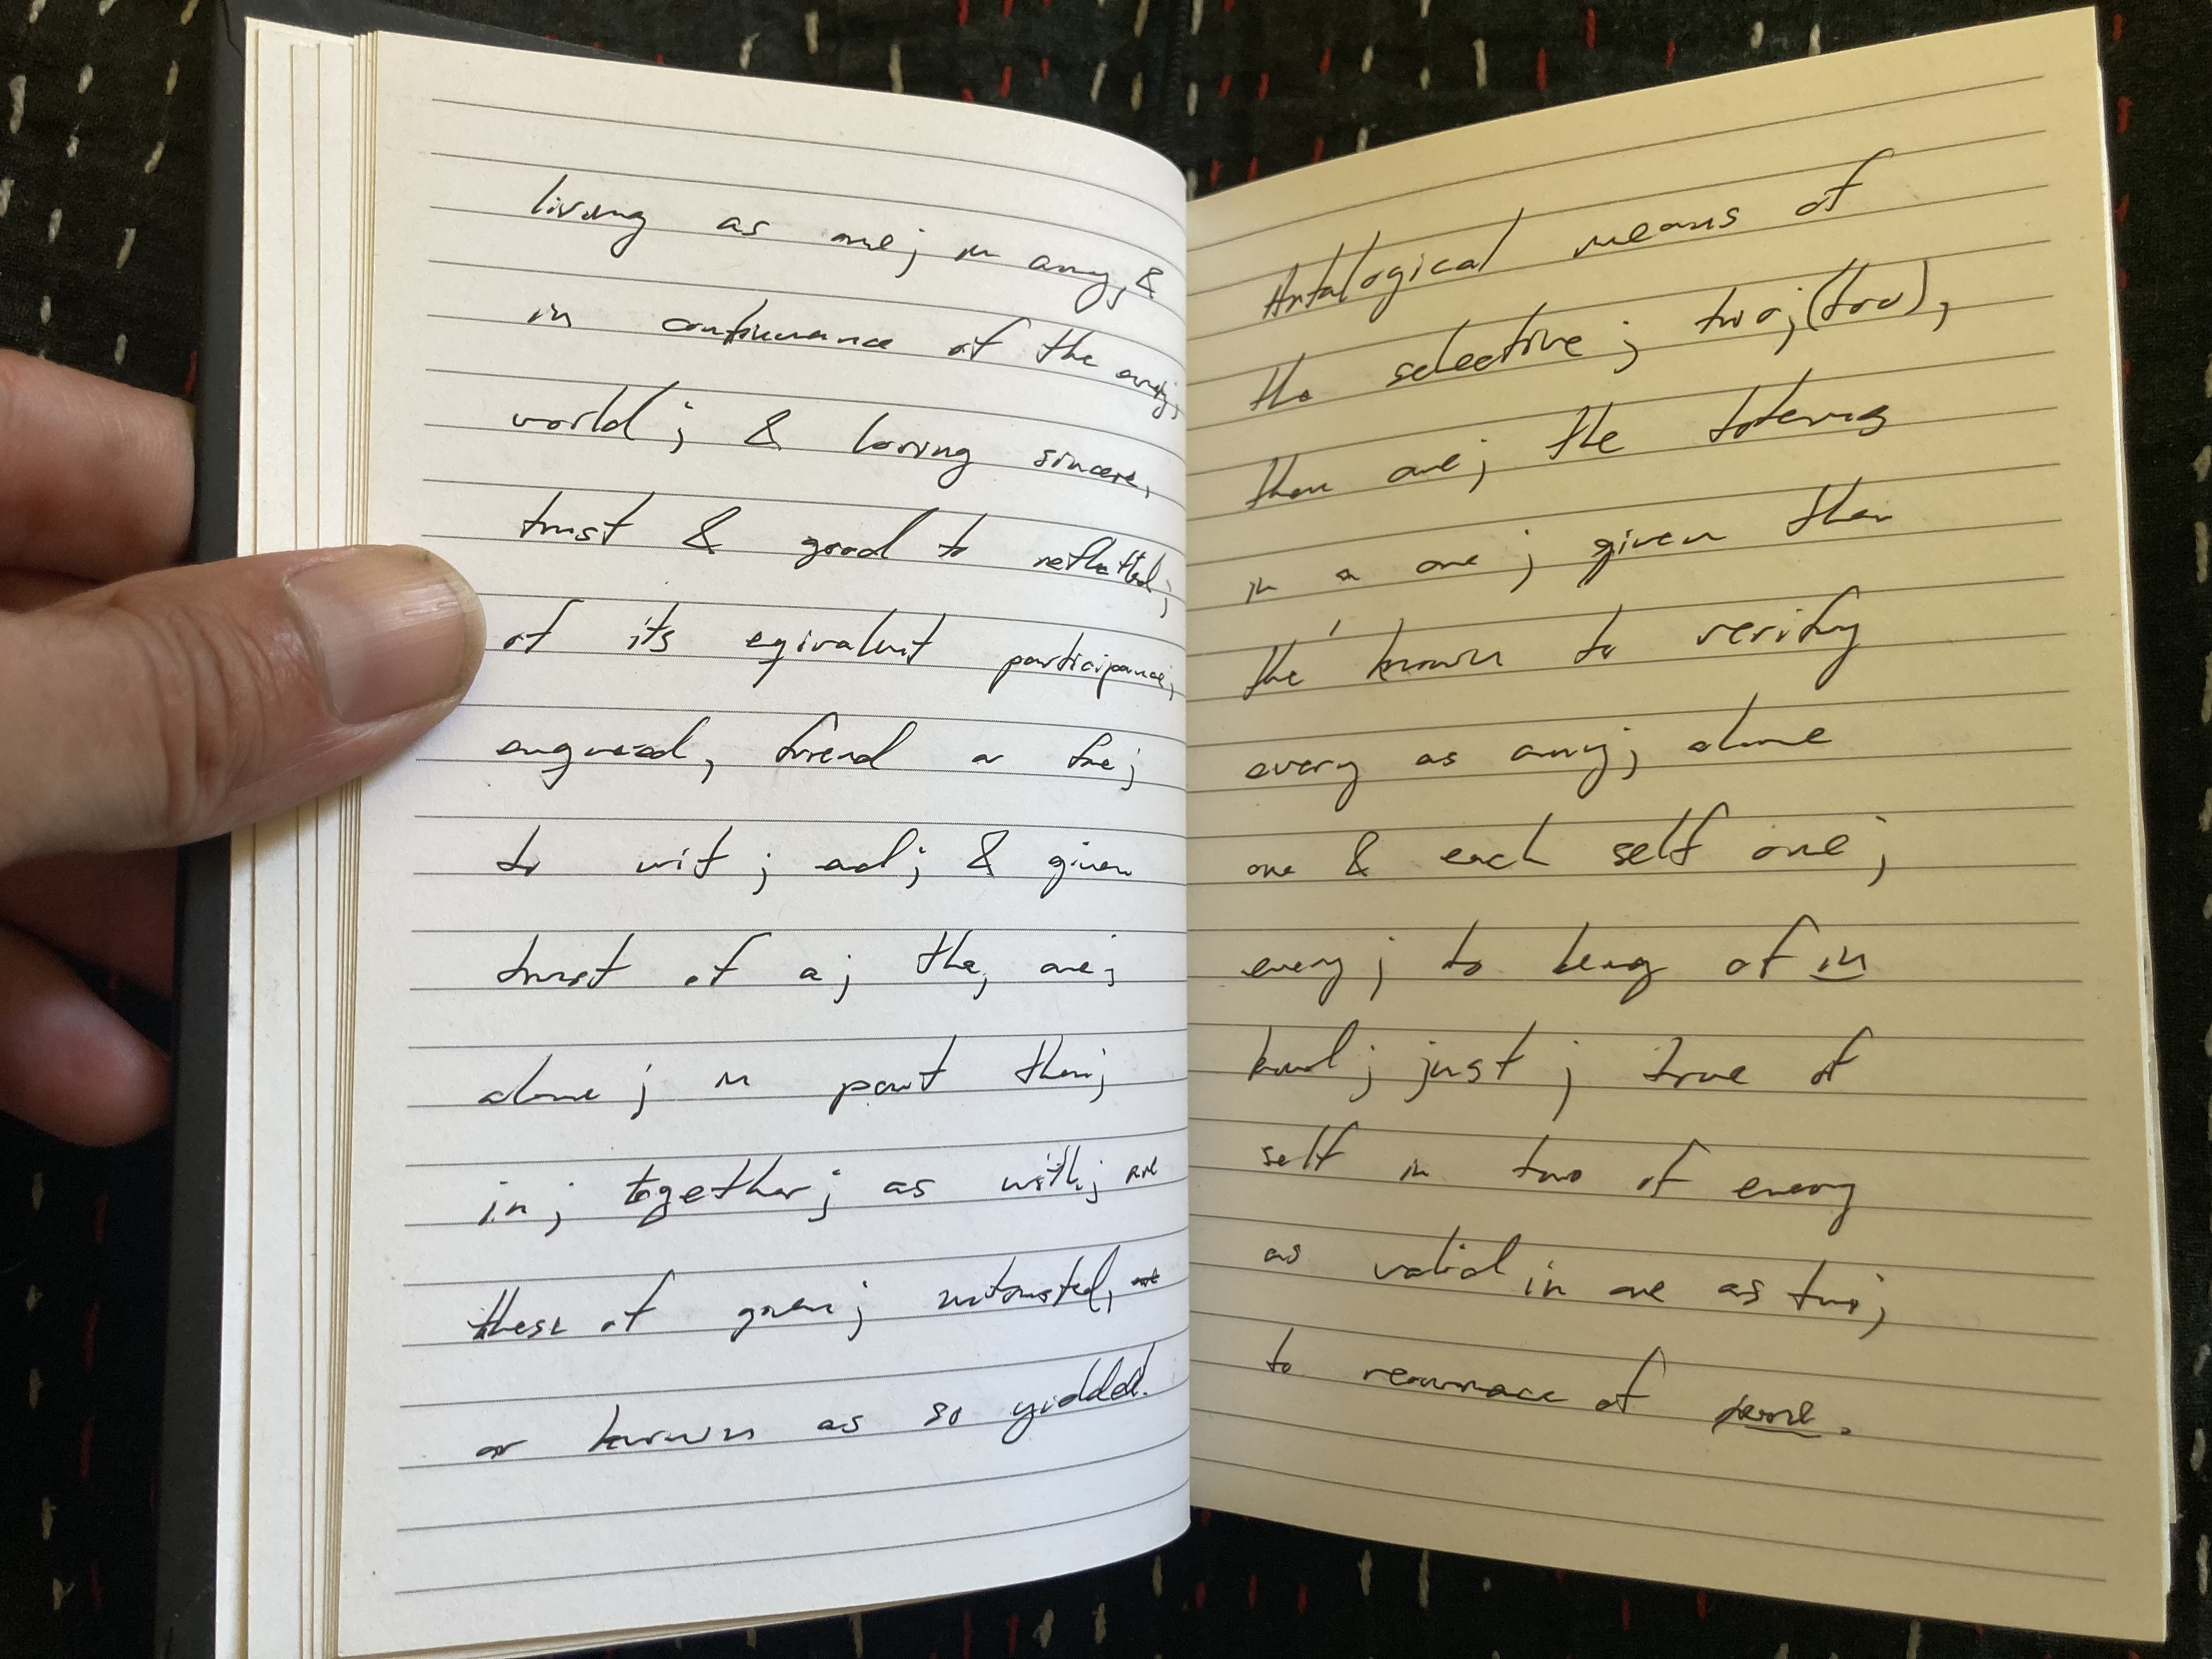 living as one; in any, &
in continuance of the any;
world; & loving sincere,
trust & good to
of its eqivalent participance,
friend or foe;
to wit; ad; & given
trust of a; the, one;
alone; in part then;
in; together; as with; one
these of given; entrusted,
or known as so yielded.
means of
the selective; two; (too),
then one; the totems
in a one; given then
the known to verify
every as any; alone
one & each self one;
every; to being of in
kind; just; true of
self in two of every
as valid in one as two;
to of